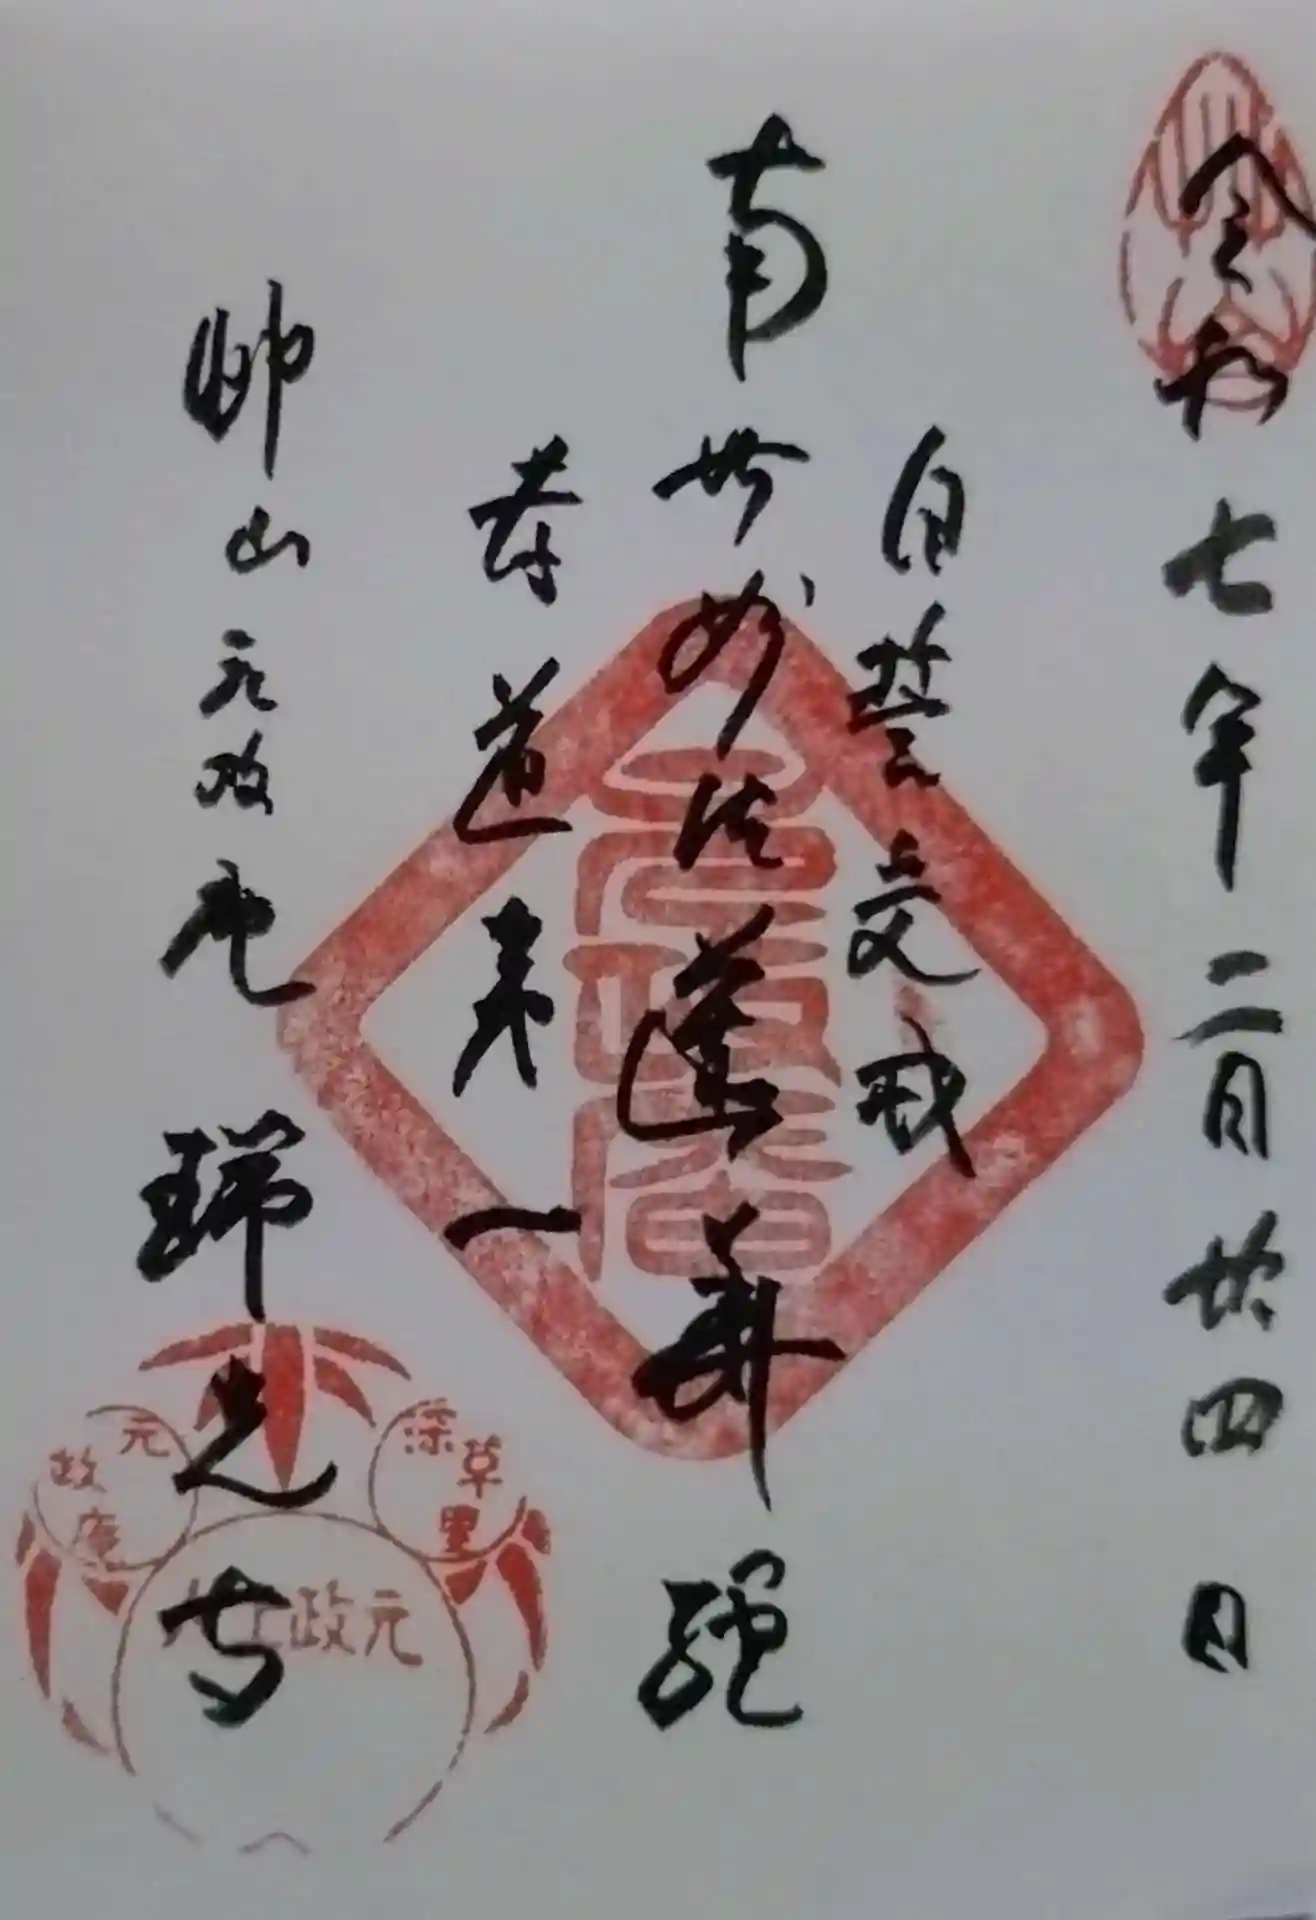 令和七年二月廿四日
自誓受戒
南無妙法蓮華經
孝道第一
艸山元政庵 瑞光寺
元政庵
深草里
元政庵
元政上